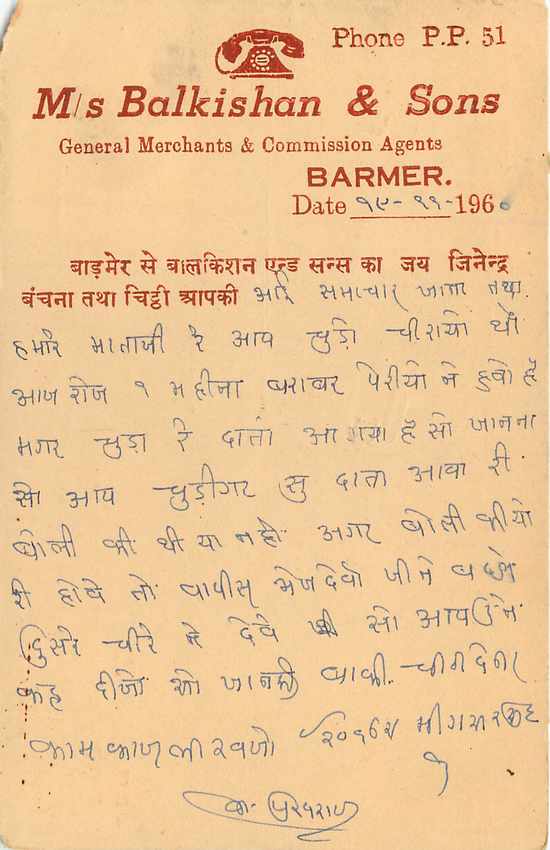 Phone P.P. 51
M/s Balkishan & Sons
General Merchants & Commission Agents
BARMER.
Date १९-११-1960
बाड़मेर से बालकिशन एन्ड सन्स का जय जिनेन्द्र
बंचना तथा चिट्ठी आपकी आई समाचार जाना तथा
हमारे माताजी रे आप चुड़ो चीरायो थो
आज रोज १ महीना बराबर पेरीयो ने हुवो है
मगर चुड़ा रे दाता आ गया है सो जानना
सो आप चुड़ीगर सु दाता आवा री
बोली की थी या नही अगर बोली कीयो
री होवे तो वापीस भेज देवो जीने
दुसरो चीरे ने देवे सो आप उने
कह दीजो सो जानसी बाकी
काम काज लीखजो २०१७ मीगसर